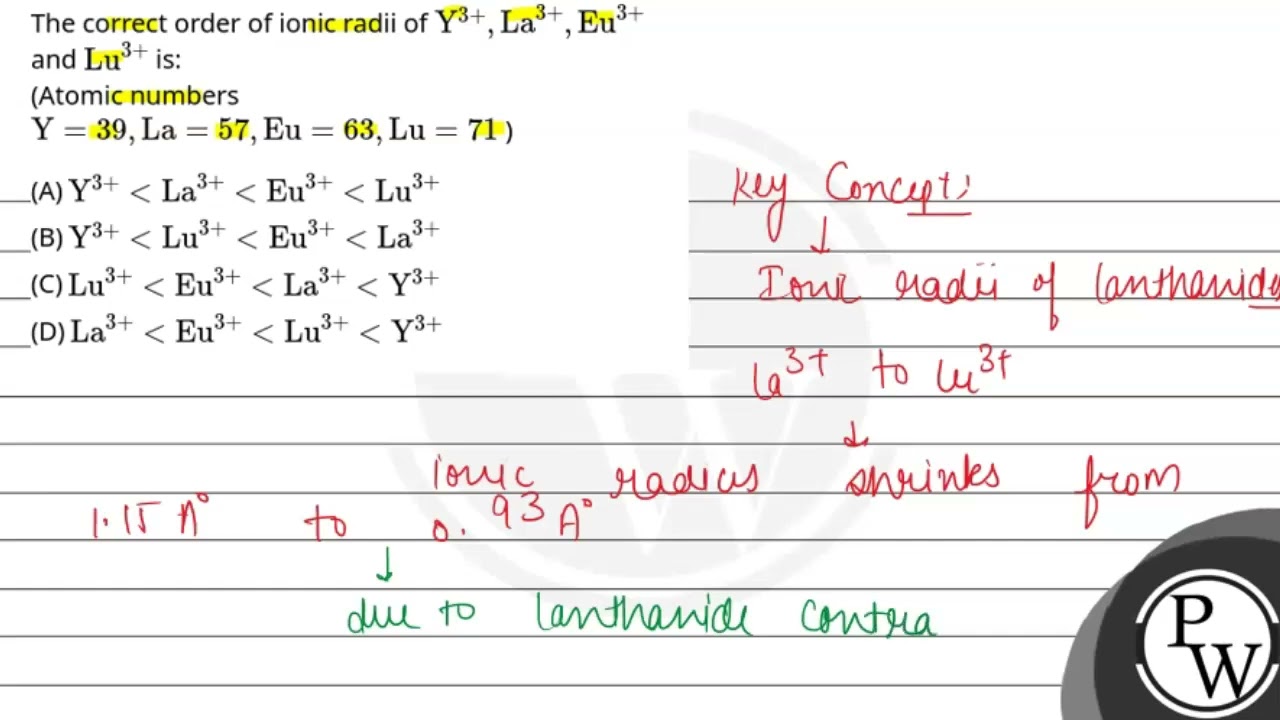 The correct order of ionic radii of Y³⁺, La³⁺, Eu³⁺
and Lu³⁺ is:
(Atomic numbers
Y = 39, La = 57, Eu = 63, Lu = 71)
(A) Y³⁺ < La³⁺ < Eu³⁺ < Lu³⁺
(B) Y³⁺ < Lu³⁺ < Eu³⁺ < La³⁺
(C) Lu³⁺ < Eu³⁺ < La³⁺ < Y³⁺
(D) La³⁺ < Eu³⁺ < Lu³⁺ < Y³⁺
Key Concept:
↓
Ionic radii of lanthanide
La³⁺ to Lu³⁺
↓
ionic radius shrinks from
1.15 A° to 0.93 A°
↓
due to lanthanide contra
P
W